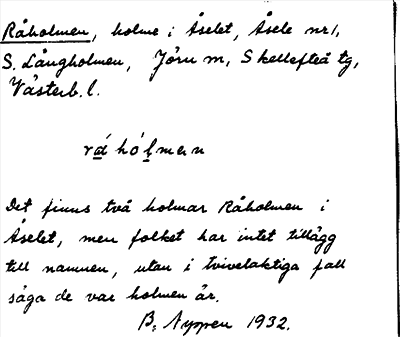 Råholmen, holme i Åselet, Åsele nr 1,
S. Långholmen, Jörn m, Skellefteå tg,
Västerb. l.
rå̀ hólmɐn
Det finns två holmar Råholmen i
Åselet, men folket har intet tillägg
till namnen, utan i tvivelaktiga fall
säga de var holmen är.
B. Nyppen 1932.